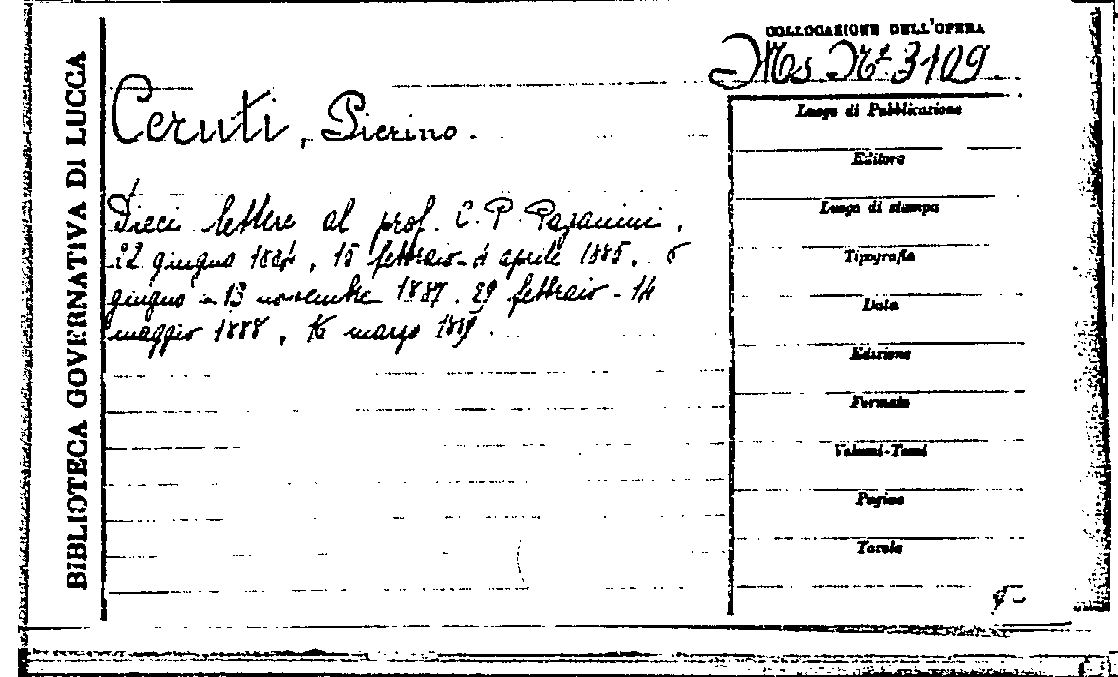 BIBLIOTECA GOVERNATIVA DI LUCCA
COLLOCAZIONE DELL'OPERA
Ms. Nº 3109
Ceruti, Pierino.
Dieci lettere al prof. C. P. Paganini,
22 giugno 1884, 15 febbraio - 4 aprile 1885, 5
giugno - 13 novembre 1887. 29 febbraio - 14
maggio 1888, 16 marzo
Luogo di Pubblicazione
Editore
Luogo di stampa
Tipografia
Data
Edizione
Formato
Volumi-Tomi
Pagine
Tavole